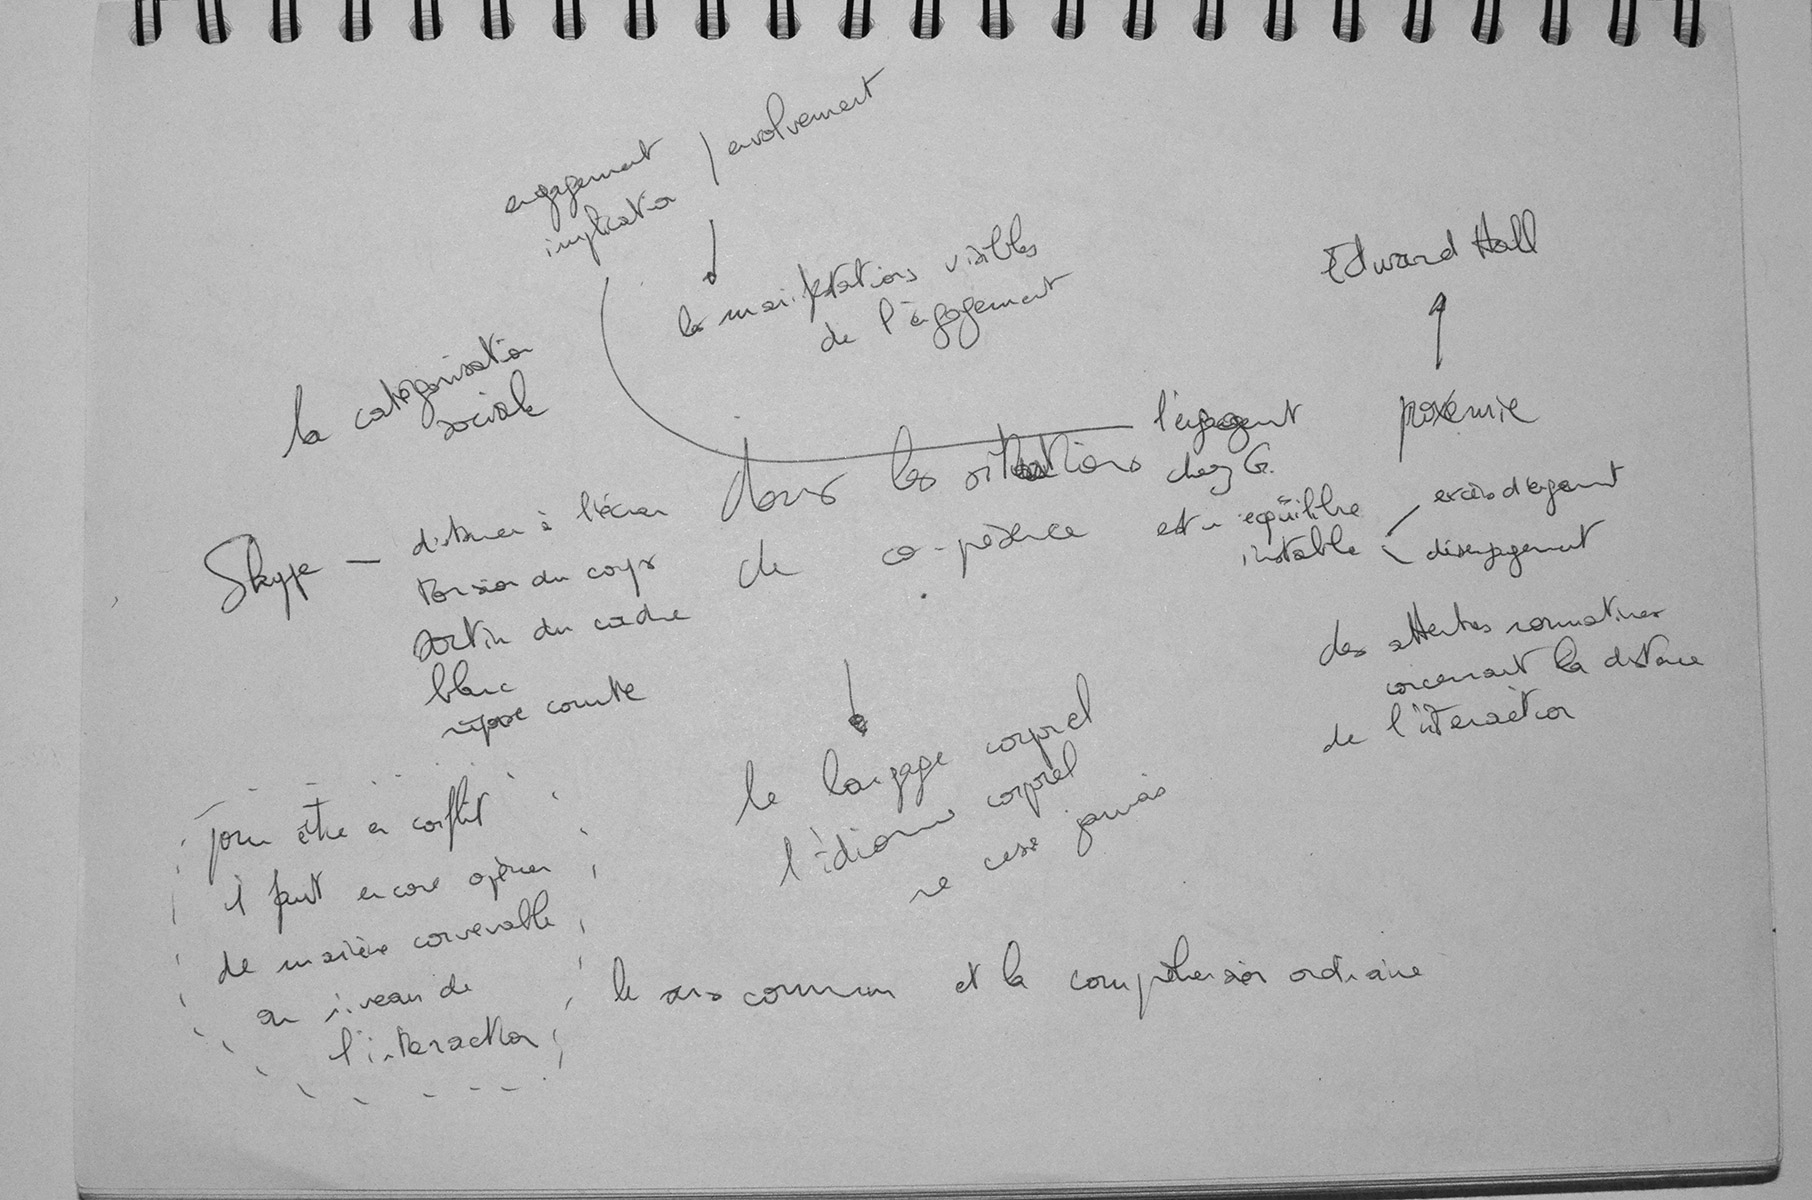 engagement / envolvement
implication
les manifestations visibles
de l'engagement
Edward Hall
la catégorisation
sociale
proxemie
l'engagement
chez G.
est un équilibre
instable
excès d'engagement
désengagement
dans les situations
de co-présence
Skype — distance à l'écran
torsion du corps
sortir du cadre
blanc
réponse courte
des attentes normatives
concernant la distance
de l'interaction
le langage corporel
l'idiome corporel
ne cesse jamais
pour être en conflit
il faut encore opérer
de manière convenable
au niveau de
l'interaction
le sens commun et la compréhension ordinaire